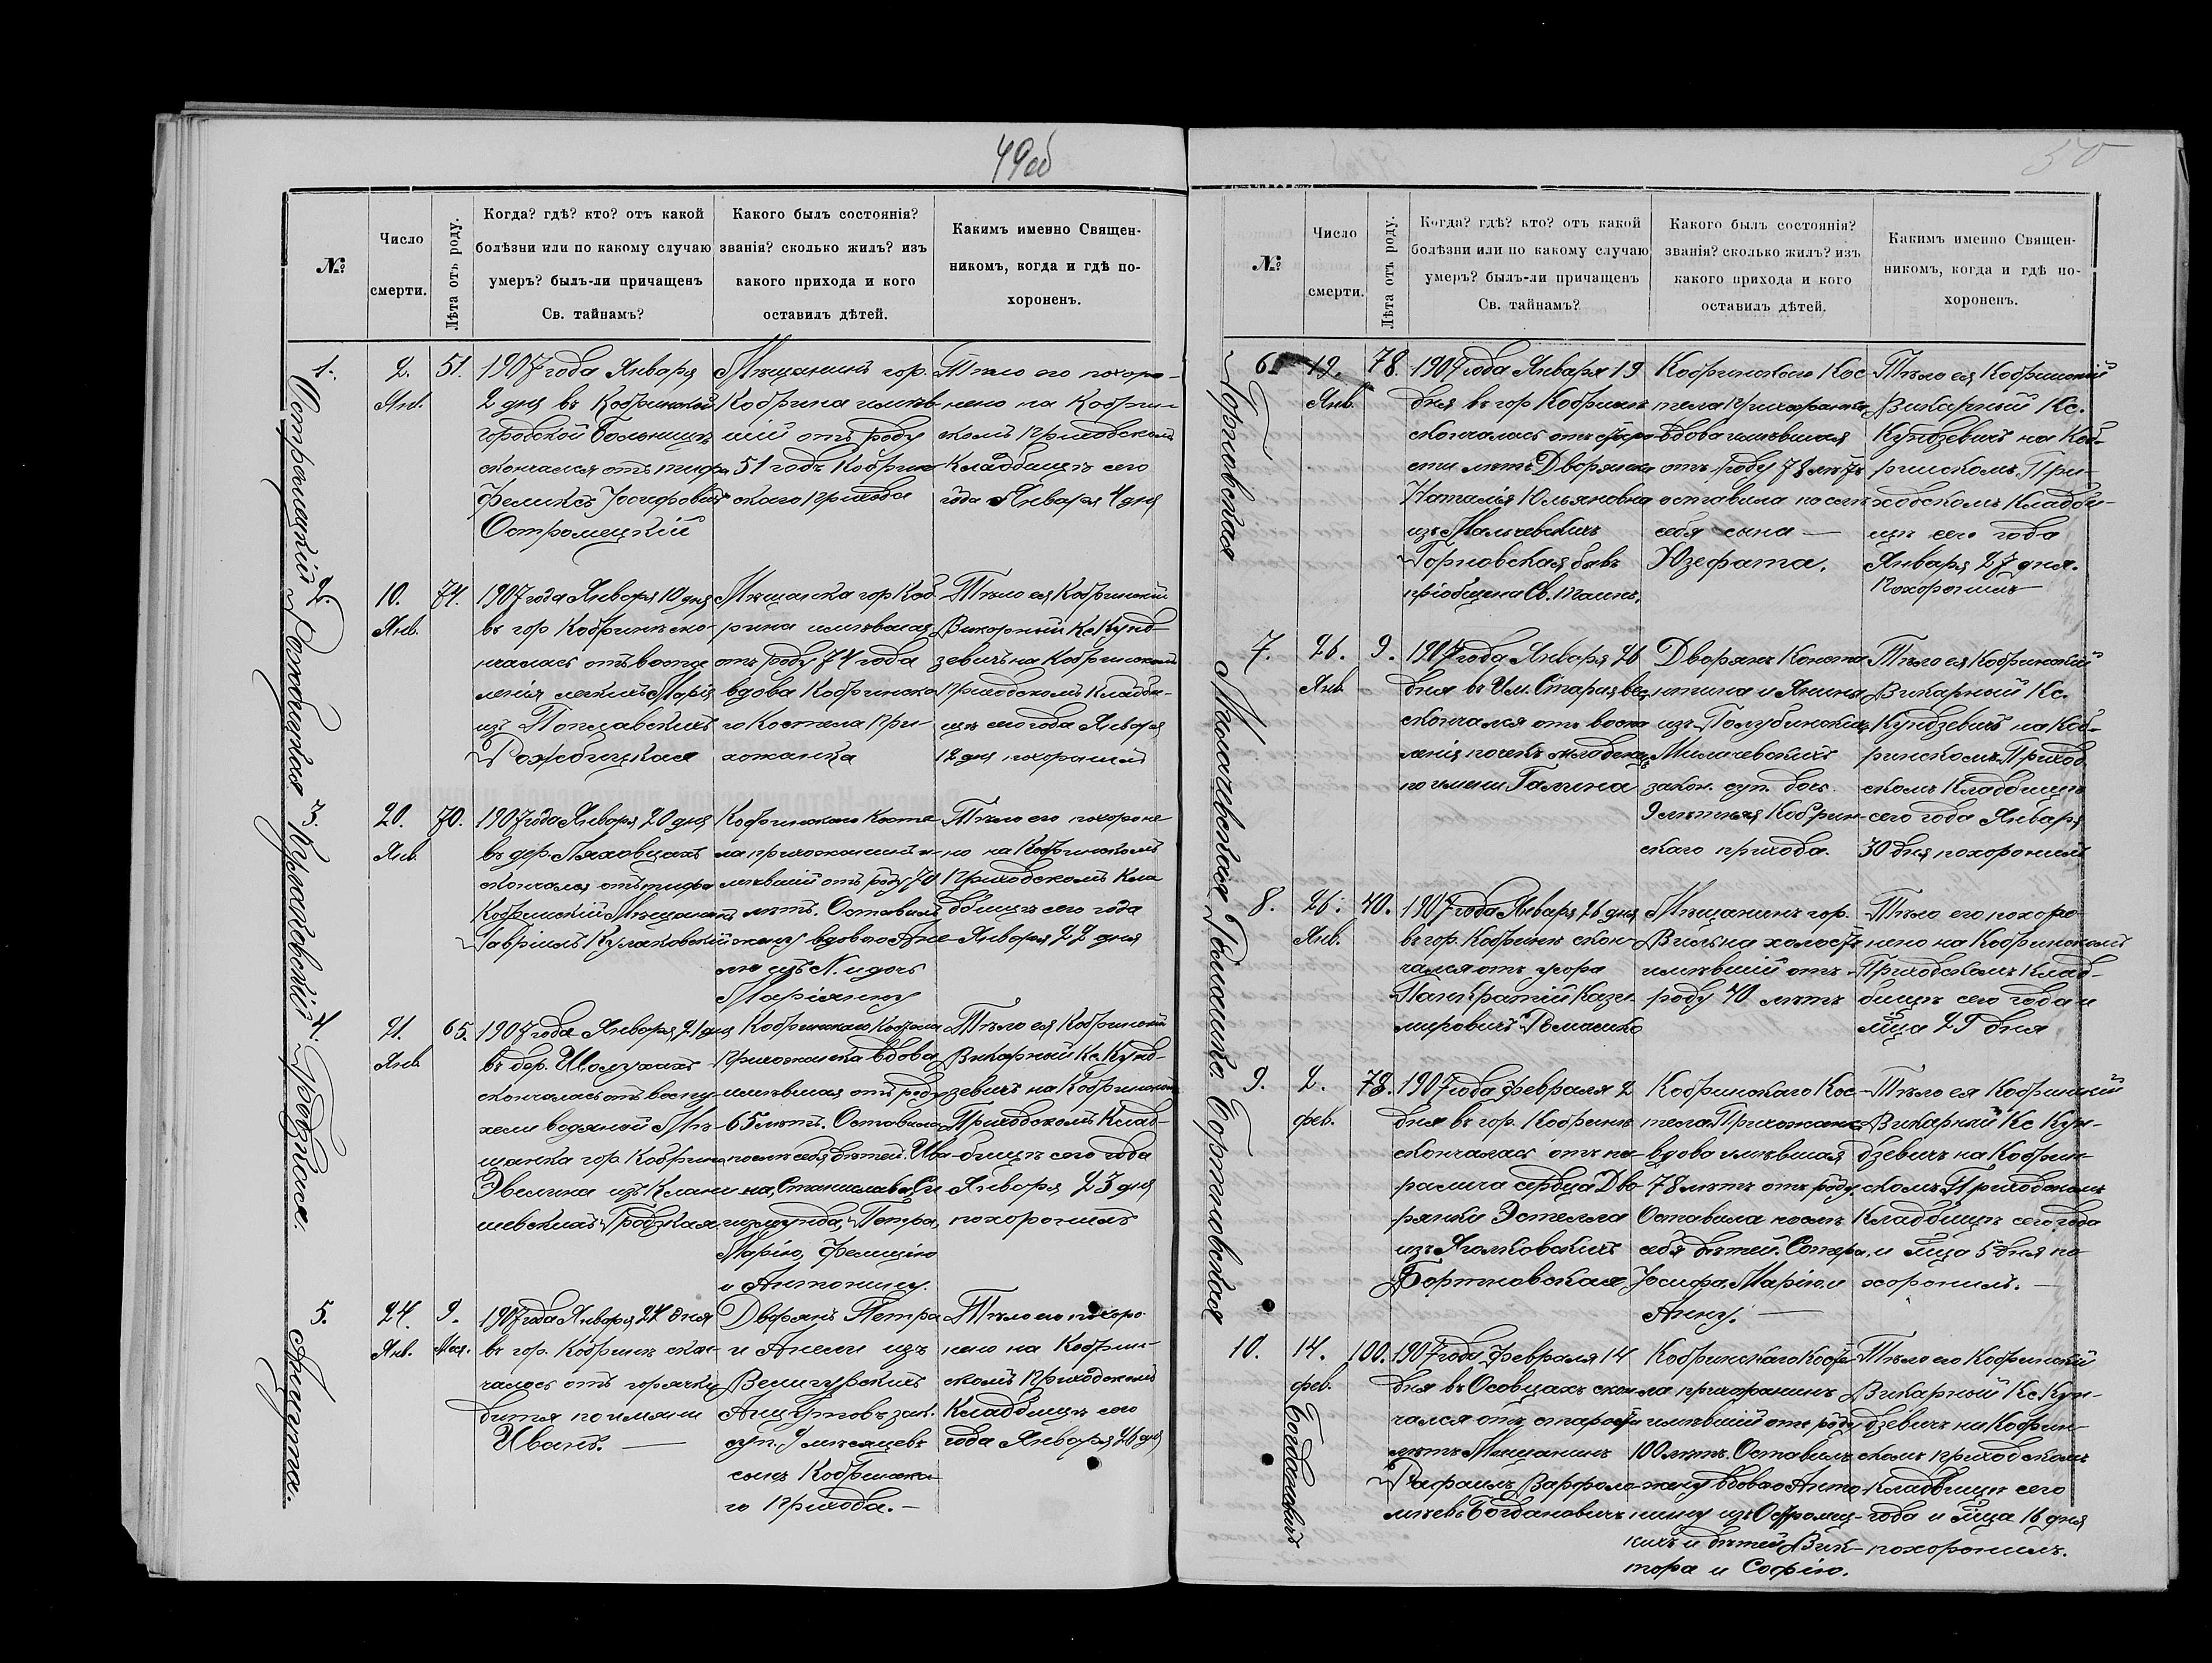 49об
№
Число смерти.
Лѣта отъ роду.
Когда? гдѣ? кто? отъ какой
болѣзни или по какому случаю
умеръ? былъ-ли причащенъ
Св. тайнамъ?
Какого былъ состоянія?
званія? сколько жилъ? изъ
какого прихода и кого
оставилъ дѣтей.
Какимъ именно Священ-
никомъ, когда и гдѣ по-
хороненъ.
1.
Остромецкій
2.
Янв.
51.
1907 года Января
2 дня въ Кобринской
городской больницѣ
скончался отъ тифа
Феликсъ Іосифовичъ
Остромецкій
Мѣщанинъ гор.
Кобрина имѣв
шій отъ роду
51 годъ Кобрин
скаго прихода
Тѣло его похоро-
нено на Кобрин-
скомъ приходскомъ
Кладбищѣ сего
года Января 4 дня
2.
Рожбицкая
10.
Янв.
74.
1907 года Января 10 дня
въ гор Кобринѣ ско-
нчалась отъ воспа
ленія легкихъ Марія
изъ Поплавскихъ
Рожбицкая
Мѣщанка гор Коб
рина имѣвшая
отъ роду 74 года
вдова Кобринска
го Костела при
хожанка
Тѣло ея Кобринскій
Викарный Кс Кунд
зевичъ на Кобринскомъ
приходскомъ кладби-
щѣ сего года Января
12 дня похоронилъ
3.
Кулаковскій
20.
Янв.
70.
1907 года Января 20 дня
въ дер. Ляховцахъ
скончался отъ тифа
Кобринскій Мѣщанинъ
Гавріилъ Кулаковскій
Кобринскаго Косте
ла прихожанинъ и-
мѣвшій отъ роду 70
лѣтъ. Оставилъ
жену вдовою Ане
лю изъ N. и дочь
Маріянну
Тѣло его похороне
но на Кобринскомъ
Приходскомъ Кла
дбищѣ сего года
Января 22 дня
4.
Гродзкая.
21.
Янв.
65.
1907 года Января 21 дня
въ дер.
скончалась отъ
водяной Мѣ-
щанка гор. Кобрина
Эвелина изъ Клани
шевскихъ Гродзкая
Кобринскаго Костела
прихожанка вдова
имѣвшая отъ роду
65 лѣтъ. Оставила
послѣ себя дѣтей. Ива
на, Станислава, Си
гизмунда, Петра,
Марію, Фелицію
и Антонину.
Тѣло ея Кобринскій
Викарный Кс Кунд-
зевичъ на Кобринскомъ
Приходскомъ Клад-
бищѣ сего года
Января 23 дня
похоронилъ
5.
Анцута.
24.
Янв.
9.
Мѣс.
1907 года Января 24 дня
въ гор. Кобринѣ скон-
чалось отъ горячки
дитя по имяни
Иванъ.
Дворянъ Петра
и Анели изъ
Анцутовъ зак.
суп. 9 мѣсяцевъ
сынъ Кобринска
го прихода.
Тѣло его похоро
нено на Кобрин-
скомъ приходскомъ
Кладбищѣ сего
года Января 26 дня
50
№
Число смерти.
Лѣта отъ роду.
Когда? гдѣ? кто? отъ какой
болѣзни или по какому случаю
умеръ? былъ-ли причащенъ
Св. тайнамъ?
Какого былъ состоянія?
званія? сколько жилъ? изъ
какого прихода и кого
оставилъ дѣтей.
Какимъ именно Священ-
никомъ, когда и гдѣ по-
хороненъ.
6.
Горновская
19.
Янв.
78.
1907 года Января 19
дня въ гор Кобринѣ
скончалась отъ старо
сти лѣтъ Дворянка
Наталія Юльяновна
изъ Мальчевскихъ
Горновская бывъ
пріобщена Св. таинъ.
Кобринскаго Кос
тела прихожанка
вдова имѣвшая
отъ роду 78 лѣтъ
оставила послѣ
себя сына —
Юзефата.
Тѣло ея Кобринскій
Викарный Кс.
Кундзевичъ на Коб-
ринскомъ При-
ходскомъ Кладби-
щѣ сего года
Января 27 дня.
похоронилъ
7.
Милачевская
26.
Янв.
9.
1907 года Января 26
дня въ Им.
скончался отъ воспа
ленія почекъ младенецъ
по имени Галина
Дворянъ Конста
нтина и Янины
изъ Голубинскихъ
Милачевскихъ
закон. суп. дочь
9 лѣтняя Кобрин-
скаго прихода.
Тѣло ея Кобринскій
Викарный Кс.
Кундзевичъ на Коб-
ринскомъ Приход
скомъ Кладбищѣ
сего года Января
30 дня похоронилъ
8.
26.
Янв.
40.
1907 года Января 26 дня
въ гор. Кобринѣ скон
чался отъ
Панкратій Кази-
мировичъ
Мѣщанинъ гор.
Вильна холостъ
имѣвшій отъ
роду 40 лѣтъ
Тѣло его похоро
нено на Кобринскомъ
Приходскомъ Клад-
бищѣ сего года и
м͠ца 29 дня
9.
Бортновская
2.
фев.
78.
1907 года Февраля 2
дня въ гор. Кобринѣ
скончалась отъ па-
ралича сердца Дво
рянка Эстелла
изъ Яголковскихъ
Бортновская
Кобринскаго Кос-
тела Прихожанка
вдова имѣвшая
78 лѣтъ отъ роду.
Оставила послѣ
себя дѣтей.
Іосифа, Марію и
Анну. —
Тѣло ея Кобринскій
Викарный Кс Кун-
дзевичъ на Кобрин-
скомъ Приходскомъ
Кладбищѣ сего года
и м͠ца 5 дня по-
хоронилъ. —
10.
Богдановичъ
14.
фев.
100.
1907 года Февраля 14
дня въ Осовцахъ скон
чался отъ старости
лѣтъ Мѣщанинъ
Рафаилъ Варфоло-
мѣевъ Богдановичъ
Кобринскаго Косте
ла прихожанинъ
имѣвшій отъ роду
100 лѣтъ. Оставилъ
жену вдовою Анто
нину изъ Остромец-
кихъ и дѣтей Вик-
тора и Софію.
Тѣло его Кобринскій
Викарный Кс Кун-
дзевичъ на Кобрин-
скомъ приходскомъ
Кладбищѣ сего
года и м͠ца 16 дня
похоронилъ.